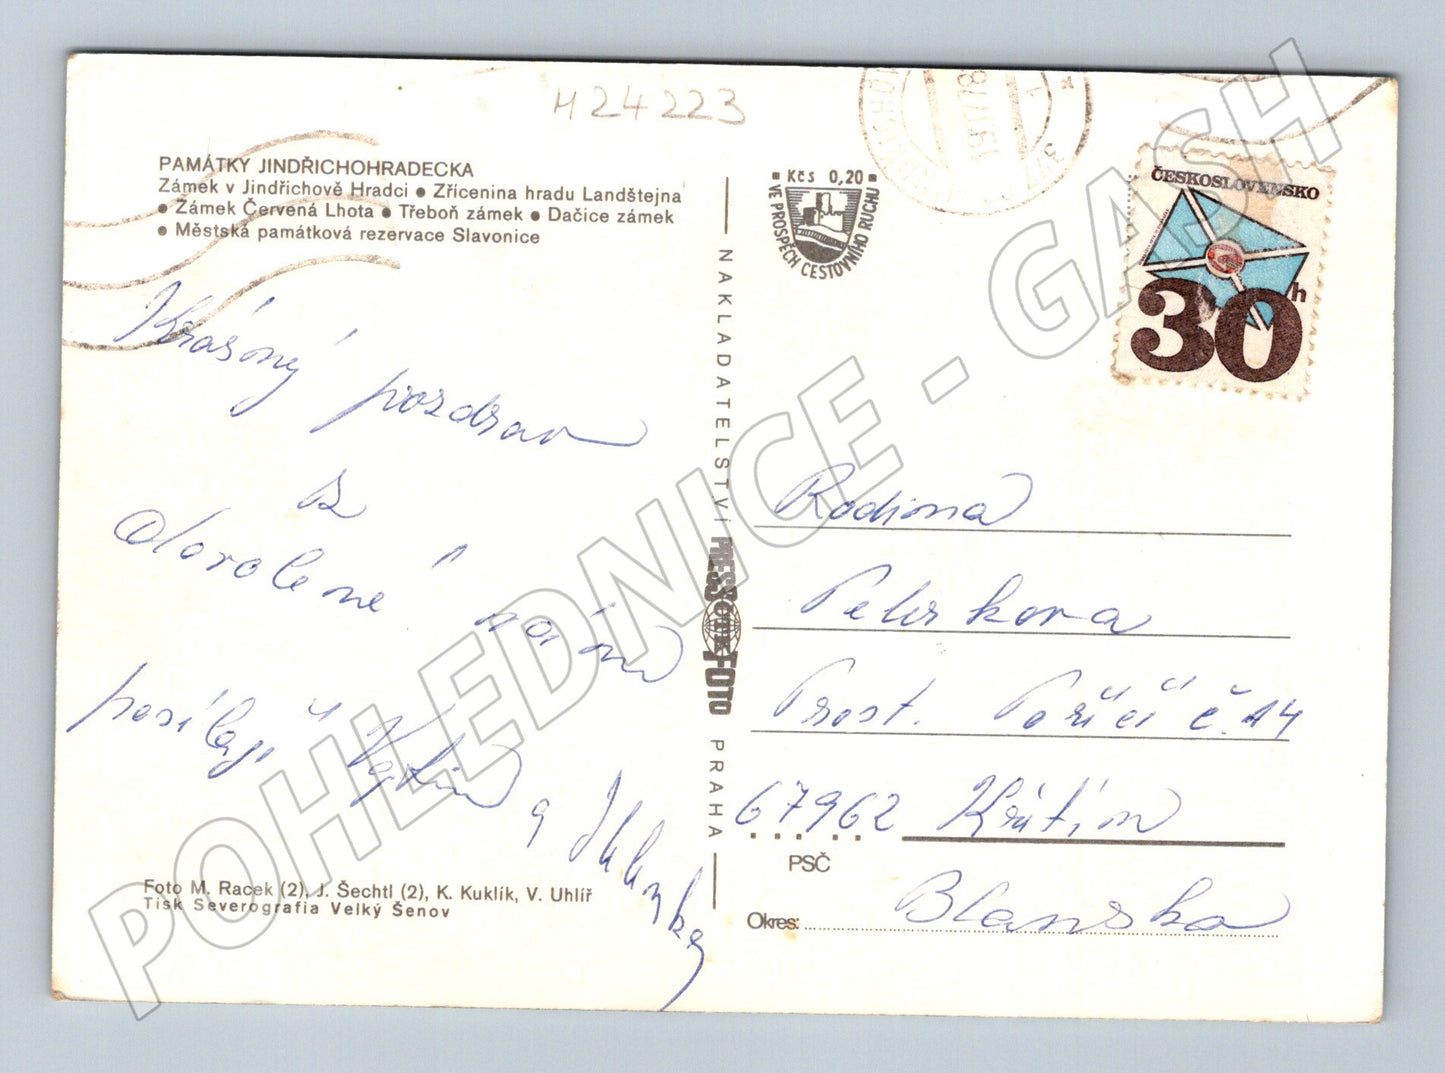 H24223
PAMÁTKY JINDŘICHOHRADECKA
Zámek v Jindřichově Hradci ● Zřícenina hradu Landštejna
● Zámek Červená Lhota ● Třeboň zámek ● Dačice zámek
● Městská památková rezervace Slavonice
Krásný
pozdrav
z
dovolené
posílají
a
Foto M. Racek (2), J. Šechtl (2), K. Kuklík, V. Uhlíř
Tisk Severografia Velký Šenov
NAKLADATELSTVÍ PRESSFOTO PRAHA
Kčs 0,20
VE PROSPĚCH CESTOVNÍHO RUCHU
ČESKOSLOVENSKO
30h
Rodina
Prost. Poříčí č. 14
67962 Křtin
PSČ
Okres: Blansko
POHLEDNICE - GASH